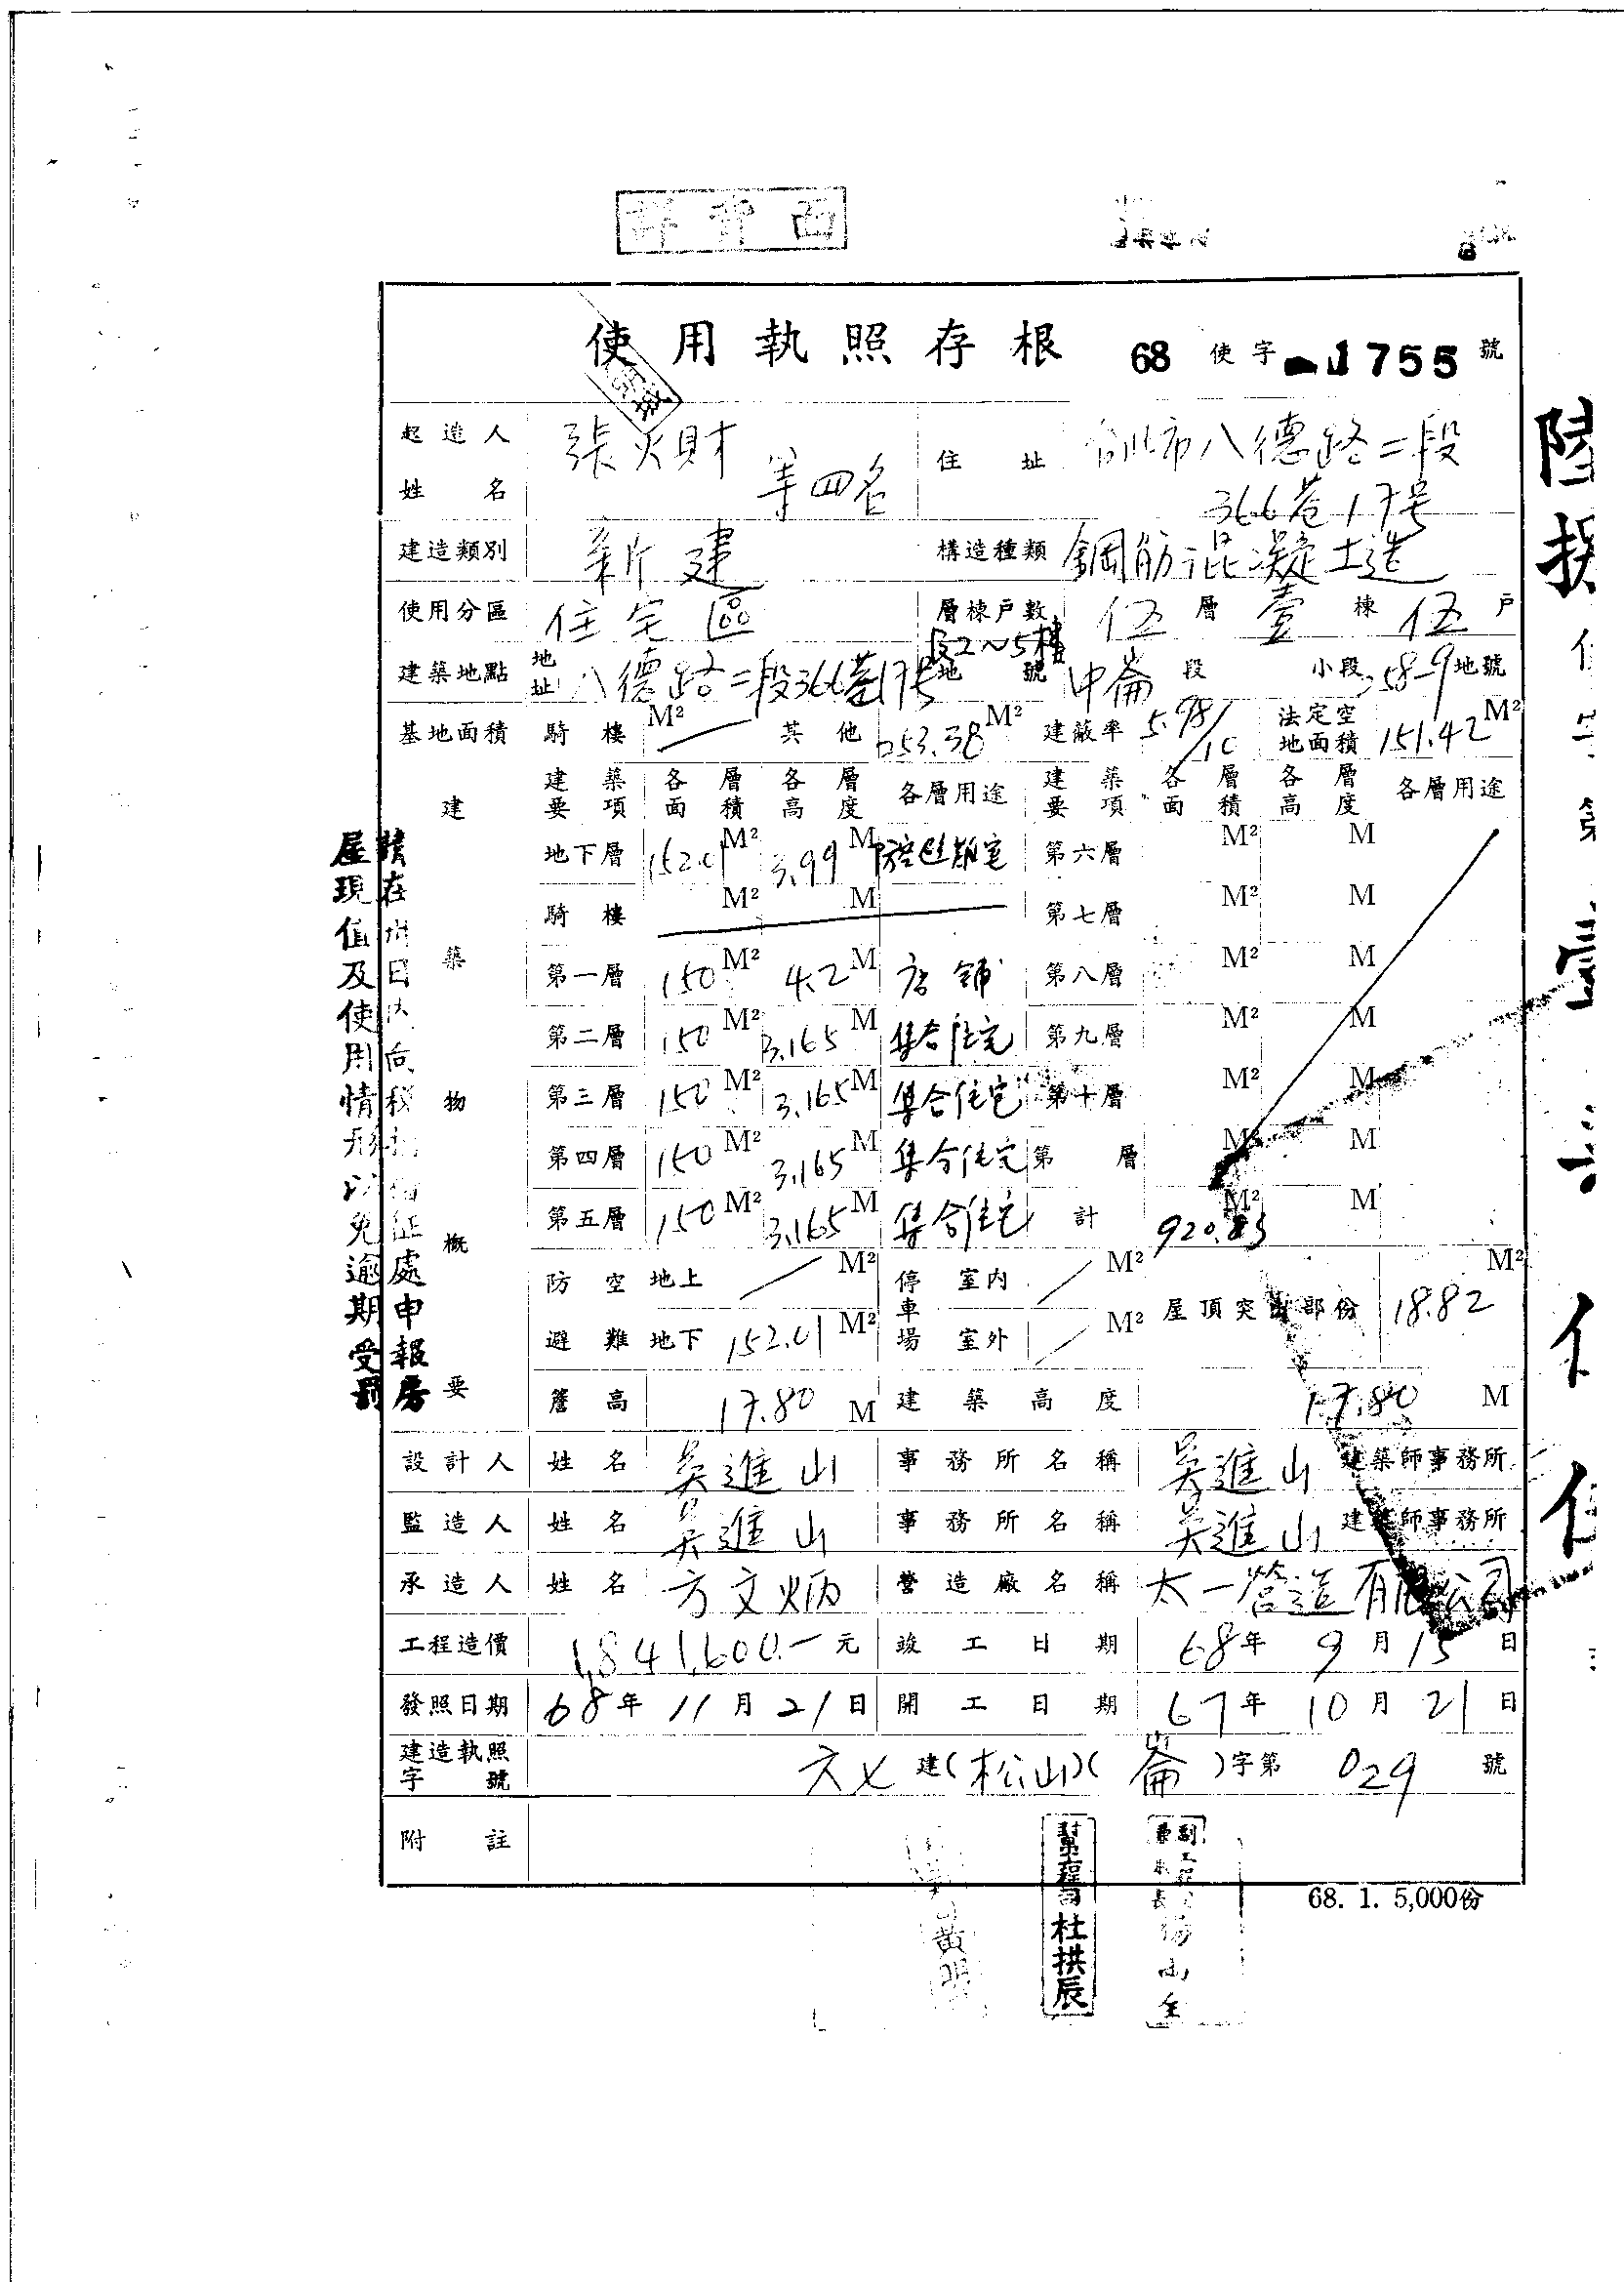 詳背面
使用執照存根 68 使字 1755 號
起造人姓名 張火財 等四名 住址 台北市八德路二段366巷17号
建造類別 新建 構造種類 鋼筋混凝土造
使用分區 住宅區 層棟戶數 伍層壹棟伍戶
建築地點 地址 八德路二段366巷17号 及2~5樓 地號 中崙段 小段 58-9地號
基地面積 騎樓 M² 其他 353.38 M² 建蔽率 5.98/10 法定空地面積 151.42 M²
建築物概要
建築要項 各層面積 各層高度 各層用途 建築要項 各層面積 各層高度 各層用途
地下層 152.01 M² 3.99 M 防空避難室 第六層 M² M
騎樓 M² M 第七層 M² M
第一層 150 M² 4.2 M 店舖 第八層 M² M
第二層 150 M² 3.165 M 集合住宅 第九層 M² M
第三層 150 M² 3.165 M 集合住宅 第十層 M² M
第四層 150 M² 3.165 M 集合住宅 第 層 M² M
第五層 150 M² 3.165 M 集合住宅 計 920.83 M² M
防空避難 地上 M² 停車場 室內 M² 屋頂突出部份 18.82 M²
地下 152.01 M² 室外 M²
簷高 17.80 M 建築高度 17.80 M
設計人 姓名 吳進山 事務所名稱 吳進山 建築師事務所
監造人 姓名 吳進山 事務所名稱 吳進山 建築師事務所
承造人 姓名 方文炳 營造廠名稱 太一營造有限公司
工程造價 1,841,600.一元 竣工日期 68年9月15日
發照日期 68年11月21日 開工日期 67年10月21日
建造執照字號 六七建(松山)(崙)字第029號
附註
68. 1. 5,000份
杜拱辰
屋現值及使用情形以免逾期受罰